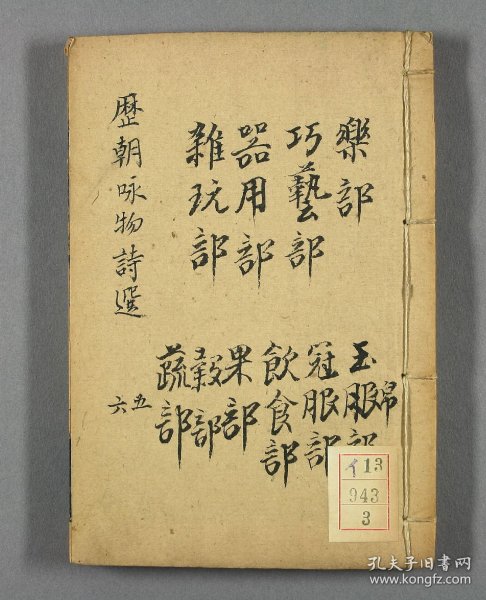 樂部
巧藝部
器用部
雜玩部
帛
玉服部
冠服部
飲食部
果部
穀部
蔬部
歴朝咏物詩選
五
六
イ13
943
3
孔夫子旧书网
www.kongfz.com